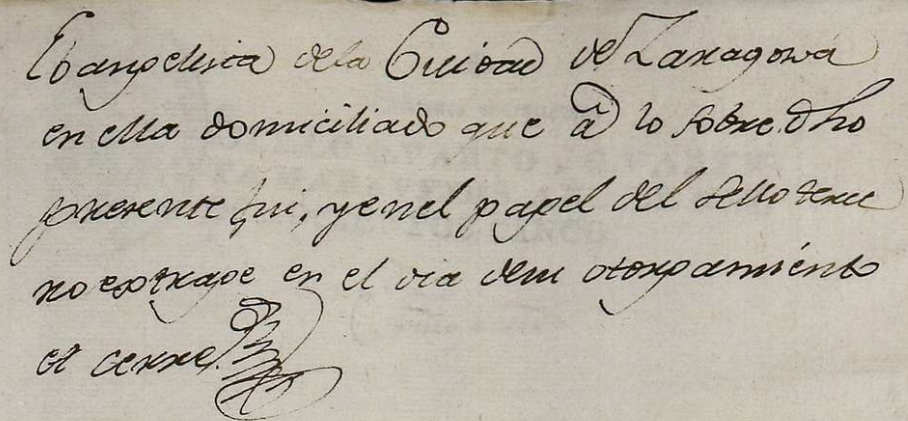 Evangelista dela Ciudad de Zaragoza
en ella domiciliado que à lo sobre dho
presente fui, y en el papel del sello terce
ro extrage en el dia desu otorgamiento
et cerre.